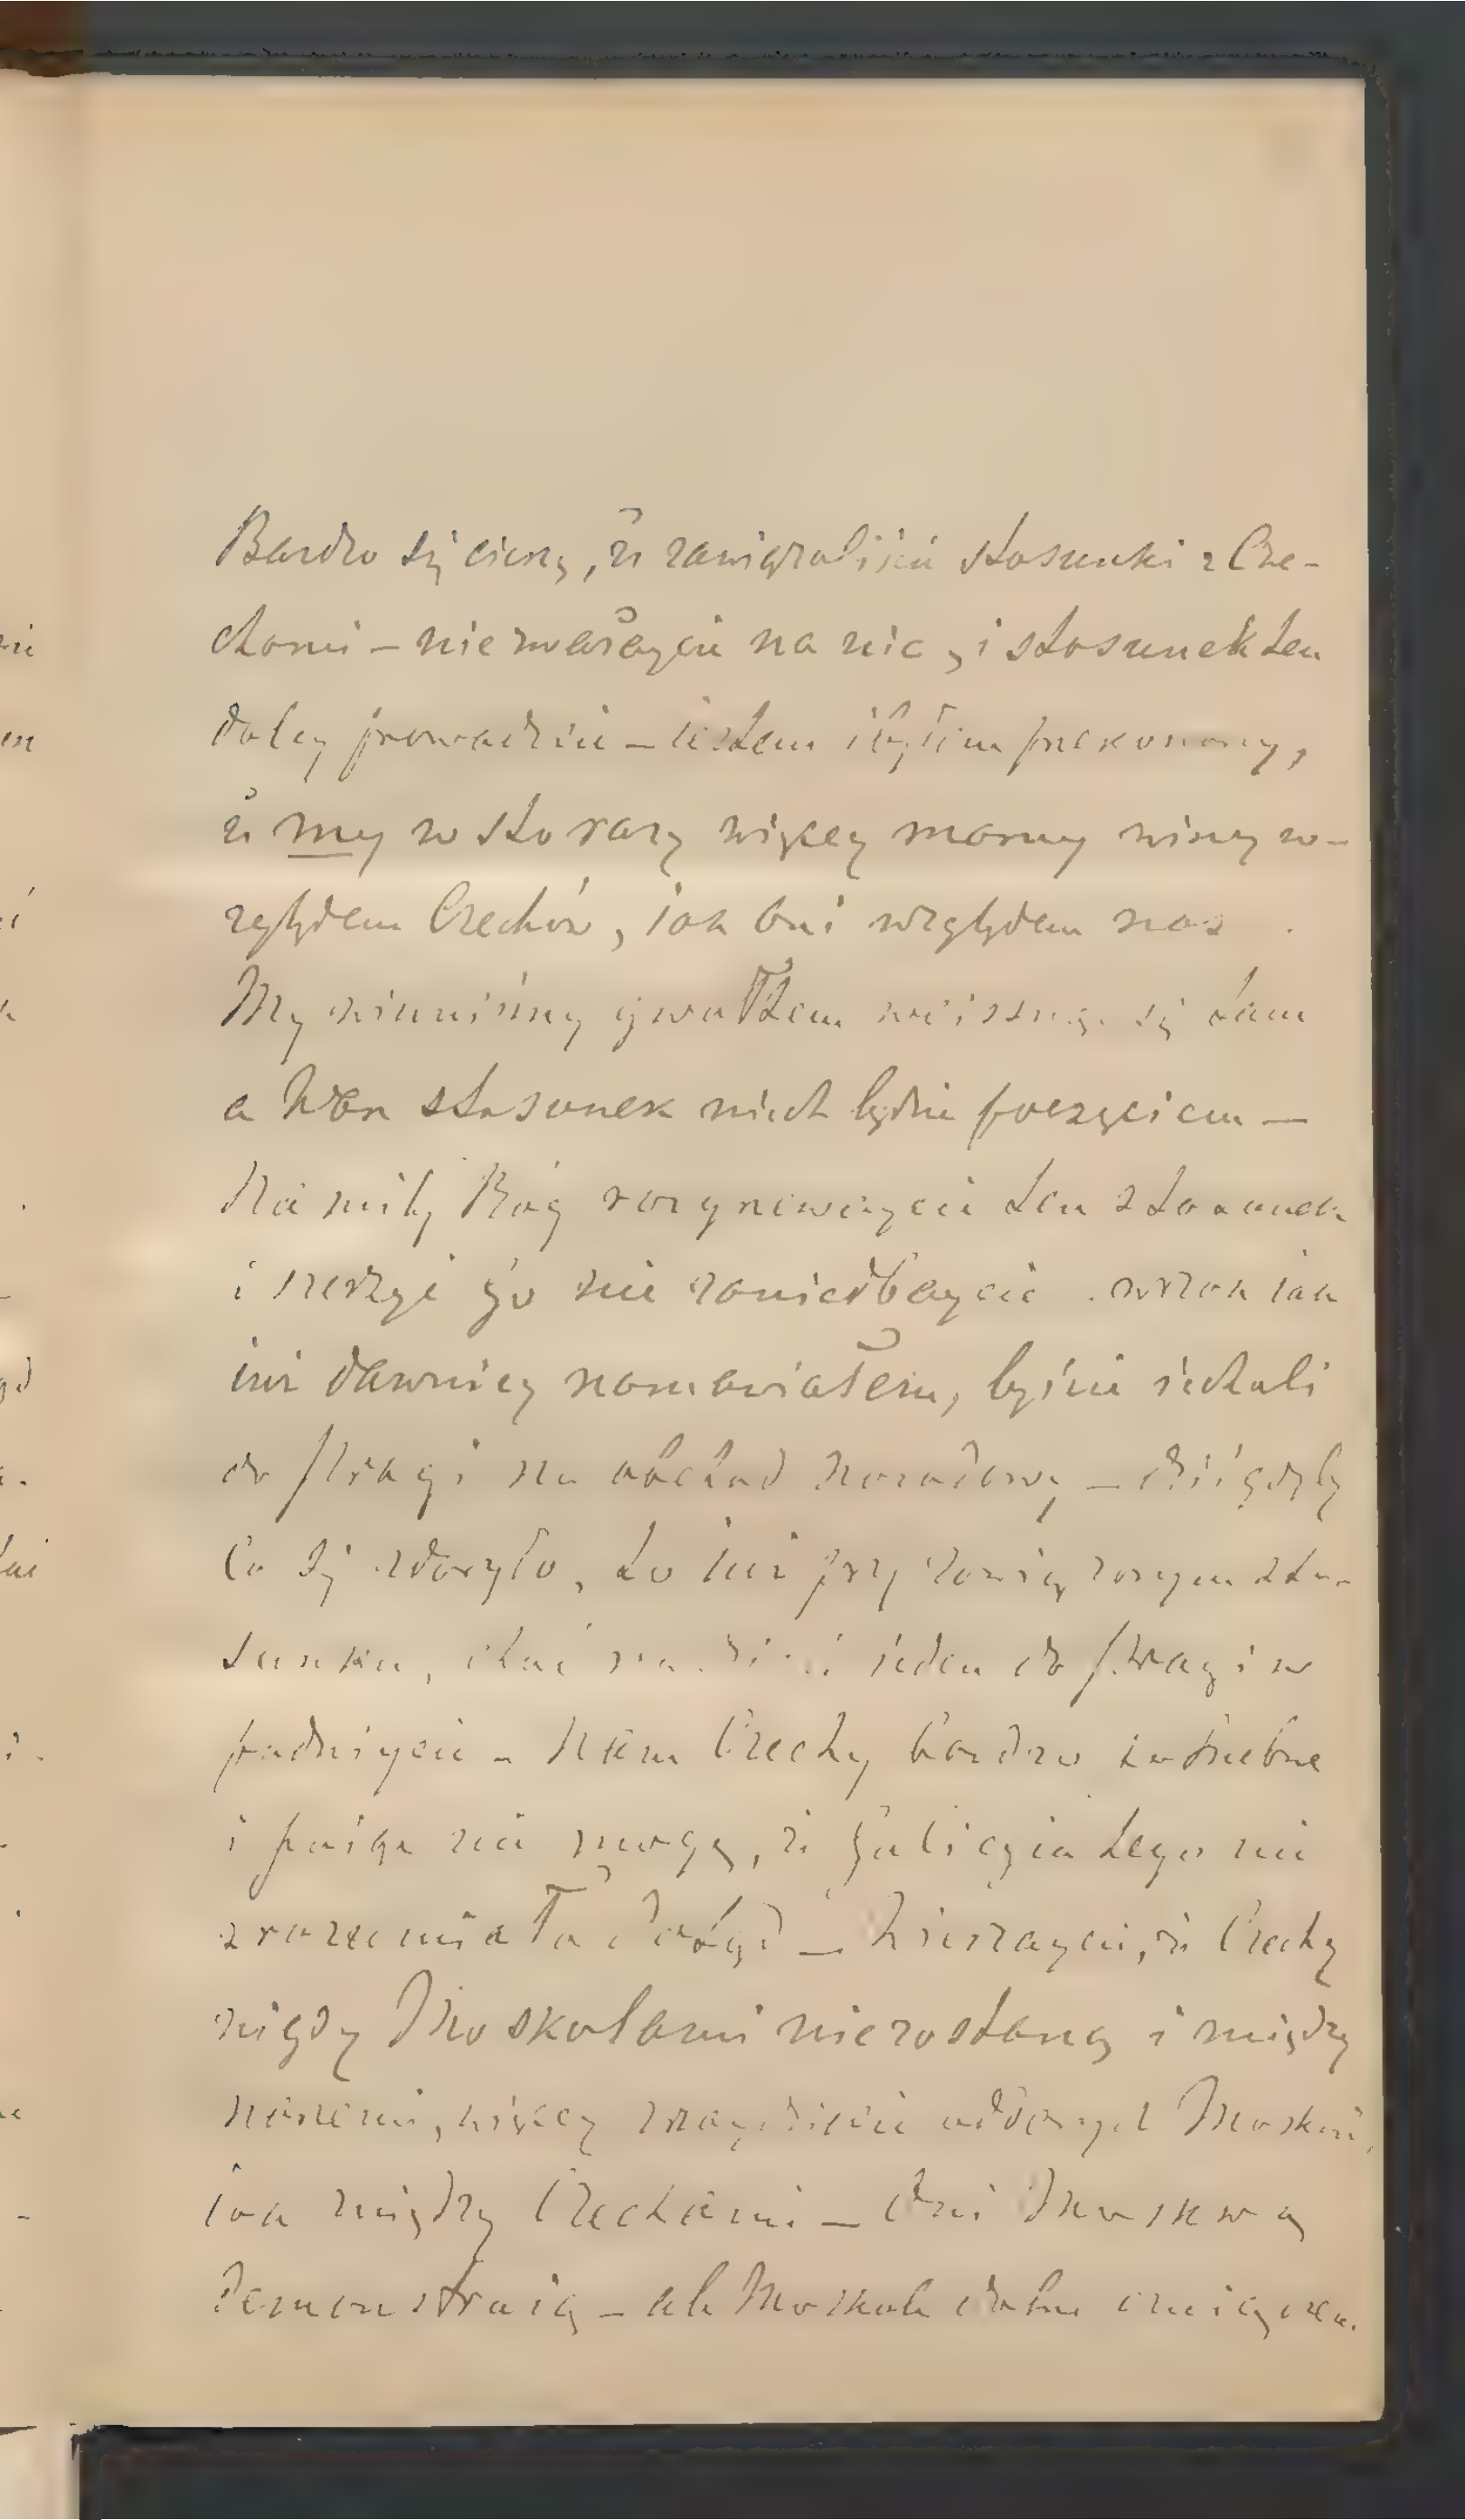 Bardzo się cieszę, że zawiązaliście stosunki z Cze-
chami – nie zważajcie na nic, i stosunek ten
daley prowadźcie – jestem i byłem przekonany,
że my w sto razy więcey mamy winy w-
zględem Czechów, jak oni względem nas.
My winniśmy gwałtem wcisnąć się tam
a Wasz stosunek niech będzie początkiem –
Na miły Bóg rozgrzewajcie ten stosunek
i nigdy go nie zaniedbajcie. wszak jak
już dawniey namawiałem, byście jechali
do Pragi na obchód narodowy – dziś gdyby
Co się zdarzyło, to już przy zawiązanym sto-
sunku, choć jeden do Pragi w
padniecie – Nam Czechy bardzo potrzebne
i pojąć nie mogę, że Galicyia tego nie
zrozumiała dotąd – Wierzaycie, że Czechy
nigdy Moskalami nie zostaną i między
naszemi, więcey znaydziecie oddanych Moskwie,
jak między Czechami – Oni Moskwą
demonstrują – ale Moskale